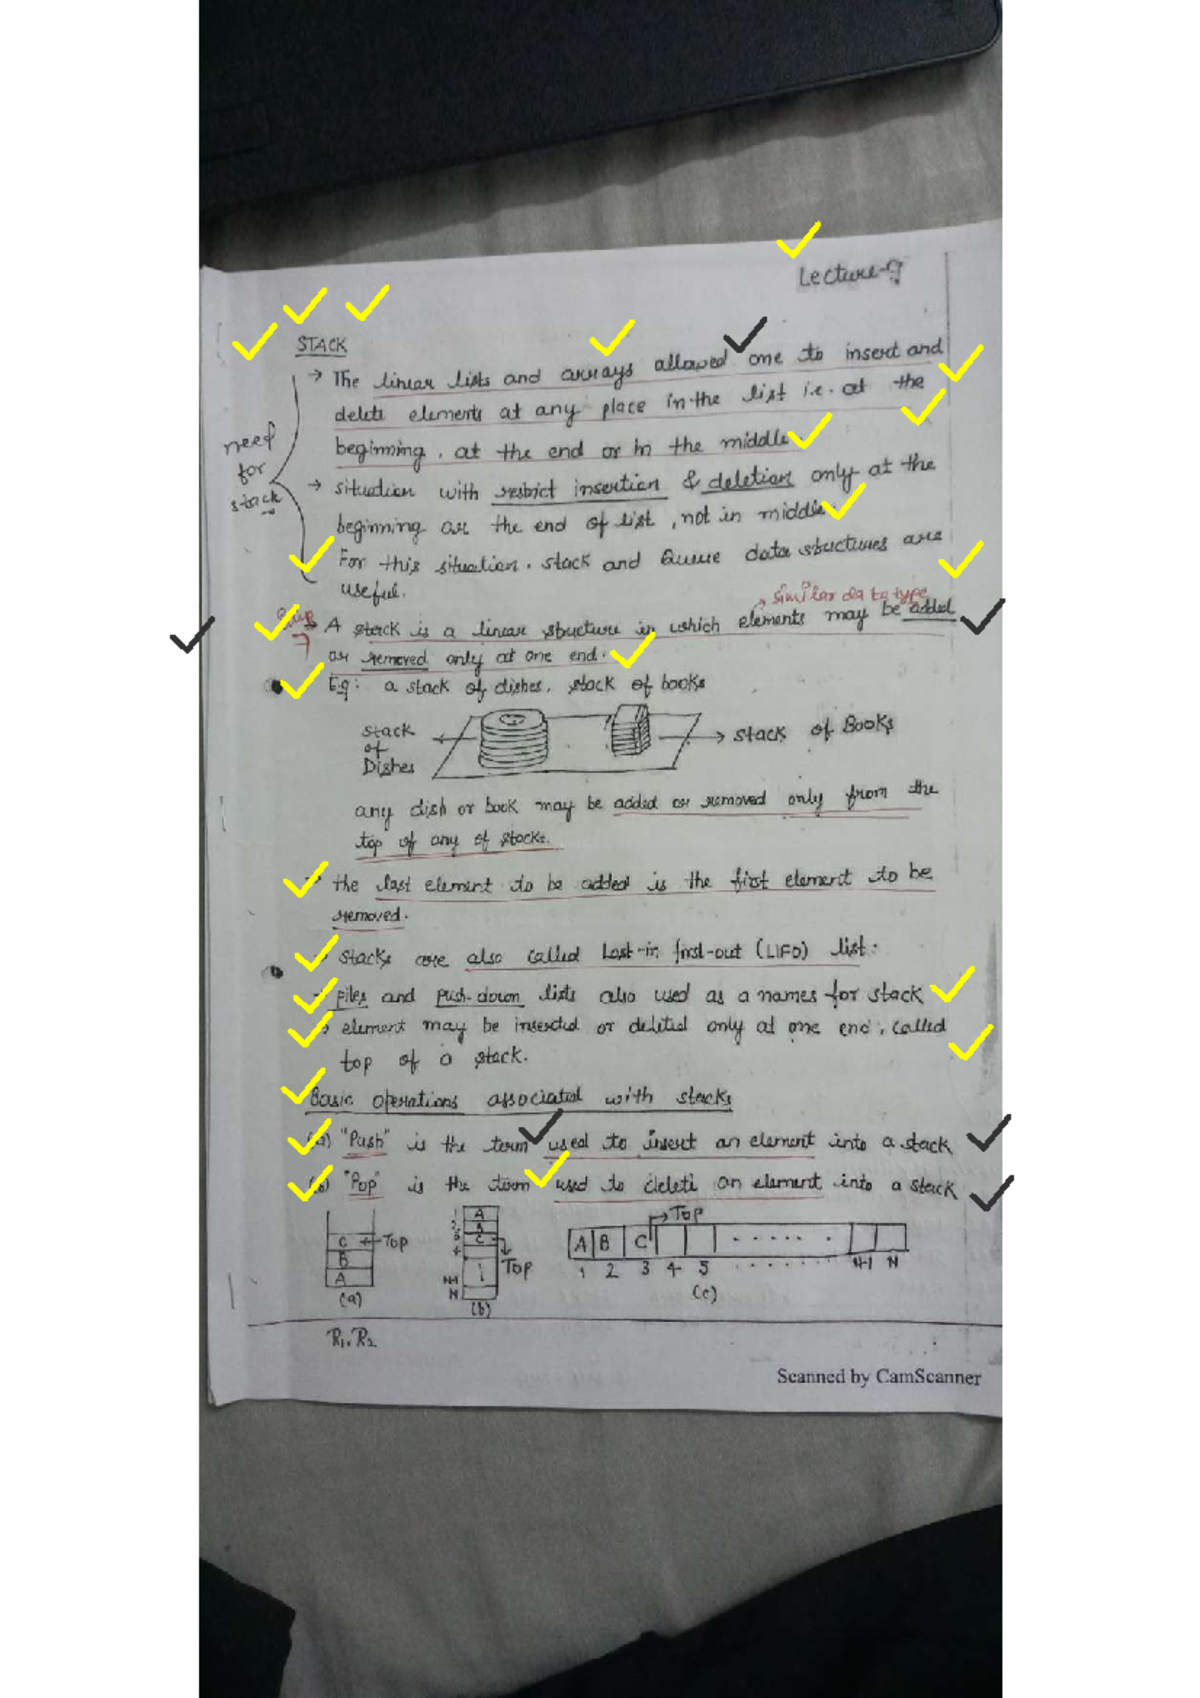 Lecture-9
STACK
→ The linear lists and arrays allowed one to insert and
delete elements at any place in the list i.e. at the
beginning, at the end or in the middle
need
for
stack
→ situation with restrict insertion & deletion only at the
beginning or the end of list, not in middle.
For this situation, stack and Queue data structures are
useful.
similar data type
A stack is a linear structure in which elements may be added
or removed only at one end.
Eg: a stack of dishes, stack of books
Stack
of
Dishes
→ stack of Books
any dish or book may be added or removed only from the
top of any of stacks.
→ the last element to be added is the first element to be
removed.
→ stacks are also called Last-in first-out (LIFO) list.
→ piles and push-down lists also used as a names for stack
→ element may be inserted or deleted only at one end, called
top of a stack.
Basic operations associated with stacks
(a) "Push" is the term used to insert an element into a stack
(b) "Pop" is the term used to delete an element into a stack
C ← Top
B
A
(a)
1 A
2 B
3 C
4
Top
N-1
N
(b)
→ Top
A B C
1 2 3 4 5 ...... N-1 N
(c)
R₁, R₂
Scanned by CamScanner